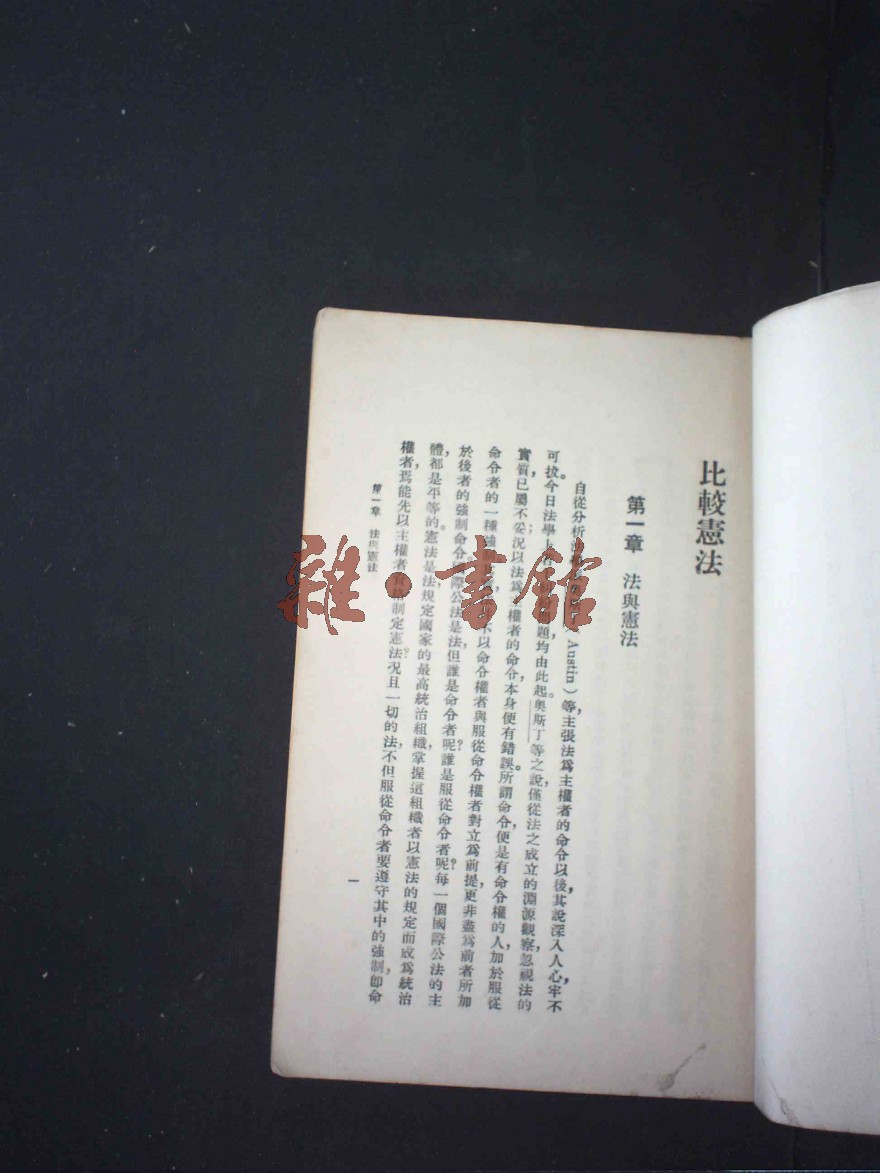 比較憲法
第一章 法與憲法
自從分析 Austin）等，主張法爲主權者的命令以後，其說深入人心，牢不
可拔。今日法學上 問題，均由此起。奧斯丁等之說，僅從法之成立的淵源觀察，忽視法的
實質，已屬不妥；況以法爲 權者的命令，本身便有錯誤。所謂命令，便是有命令權的人，加於服從
命令者的一種強 不以命令權者與服從命令權者對立爲前提，更非盡爲前者所加
於後者的強制命令。國際公法是法，但誰是命令者呢？誰是服從命令者呢？每一個國際公法的主
體，都是平等的。憲法是法，規定國家的最高統治組織，掌握這組織者，以憲法的規定而成爲統治
權者，焉能先以主權者資格制定憲法？況且一切的法，不但服從命令者要遵守其中的強制，卽命
第一章 法與憲法
一
雜·書館